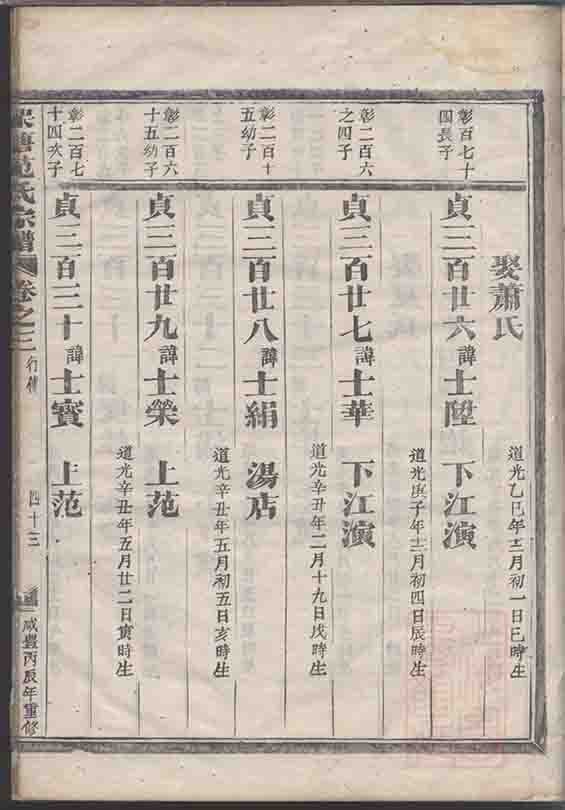 娶蕭氏
道光乙巳年十二月初一日巳時生
彰百七十
四長子
貞三百廿六諱士陞 下江演
道光庚子年十二月初四日辰時生
彰二百六
之四子
貞三百廿七諱士華 下江演
道光辛丑年二月十九日戌時生
彰二百十
五幼子
貞三百廿八諱士絹 湯店
道光辛丑年五月初五日亥時生
彰二百六
十五幼子
貞三百廿九諱士榮 上范
道光辛丑年五月廿二日寅時生
彰二百七
十四次子
貞三百三十諱士賓 上范
范氏宗譜 卷之三 行傳 四十三 咸豐丙辰年重修